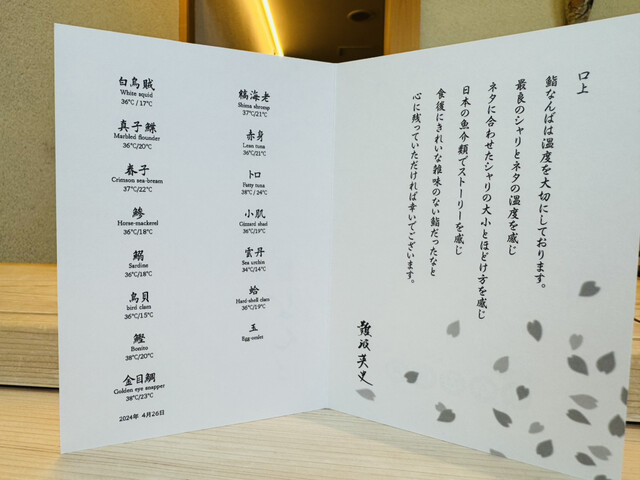 白烏賊
White squid
36℃ / 17℃
真子鰈
Marbled flounder
36℃/20℃
春子
Crimson sea-bream
37℃/22℃
鯵
Horse-mackerel
36℃/18℃
鰯
Sardine
36℃/18℃
鳥貝
bird clam
36℃/15℃
鰹
Bonito
38℃/20℃
金目鯛
Golden eye snapper
38℃/23℃
2024年 4月26日
縞海老
Shima shrimp
37℃/21℃
赤身
Lean tuna
36℃/21℃
トロ
Fatty tuna
38℃ / 24℃
小肌
Gizzard shad
36℃/19℃
雲丹
Sea urchin
34℃/14℃
蛤
Hard-shell clam
36℃/19℃
玉
Egg omlet
口上
鮨なんばは温度を大切にしております。
最良のシャリとネタの温度を感じ
ネタに合わせたシャリの大小とほどけ方を感じ
日本の魚介類でストーリーを感じ
食後にきれいな雑味のない鮨だったなと
心に残っていただければ幸いでございます。
難波英史